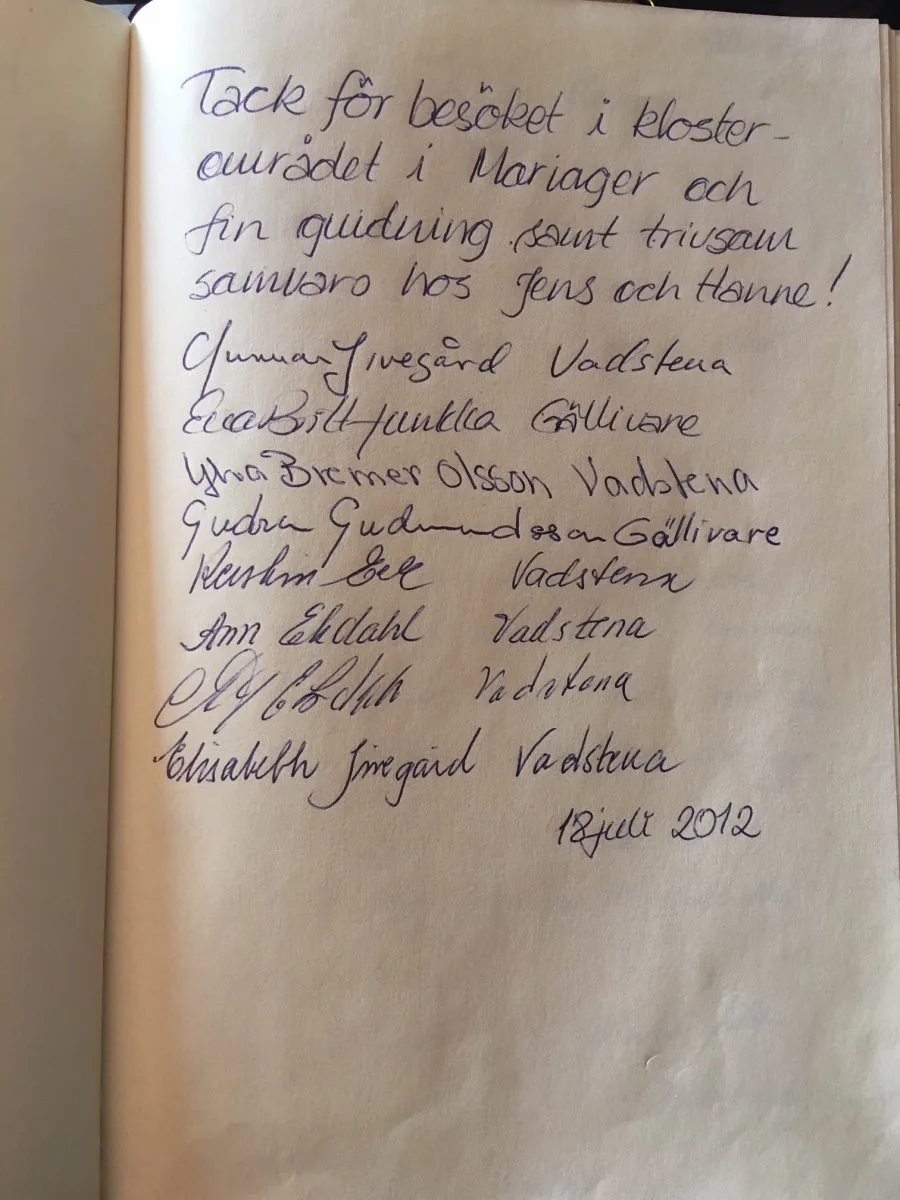 Tack för besöket i kloster-
området i Mariager och
fin guidning samt trivsam
samvaro hos Jens och Hanne!
Gunnar Jivegård Vadstena
Eva Britt Junkka Gällivare
Ylva Bremer Olsson Vadstena
Gudrun Gudmundsson Gällivare
Kerstin Eek Vadstena
Ann Ekdahl Vadstena
Vadstena
Elisabeth Jivegård Vadstena
18 juli 2012